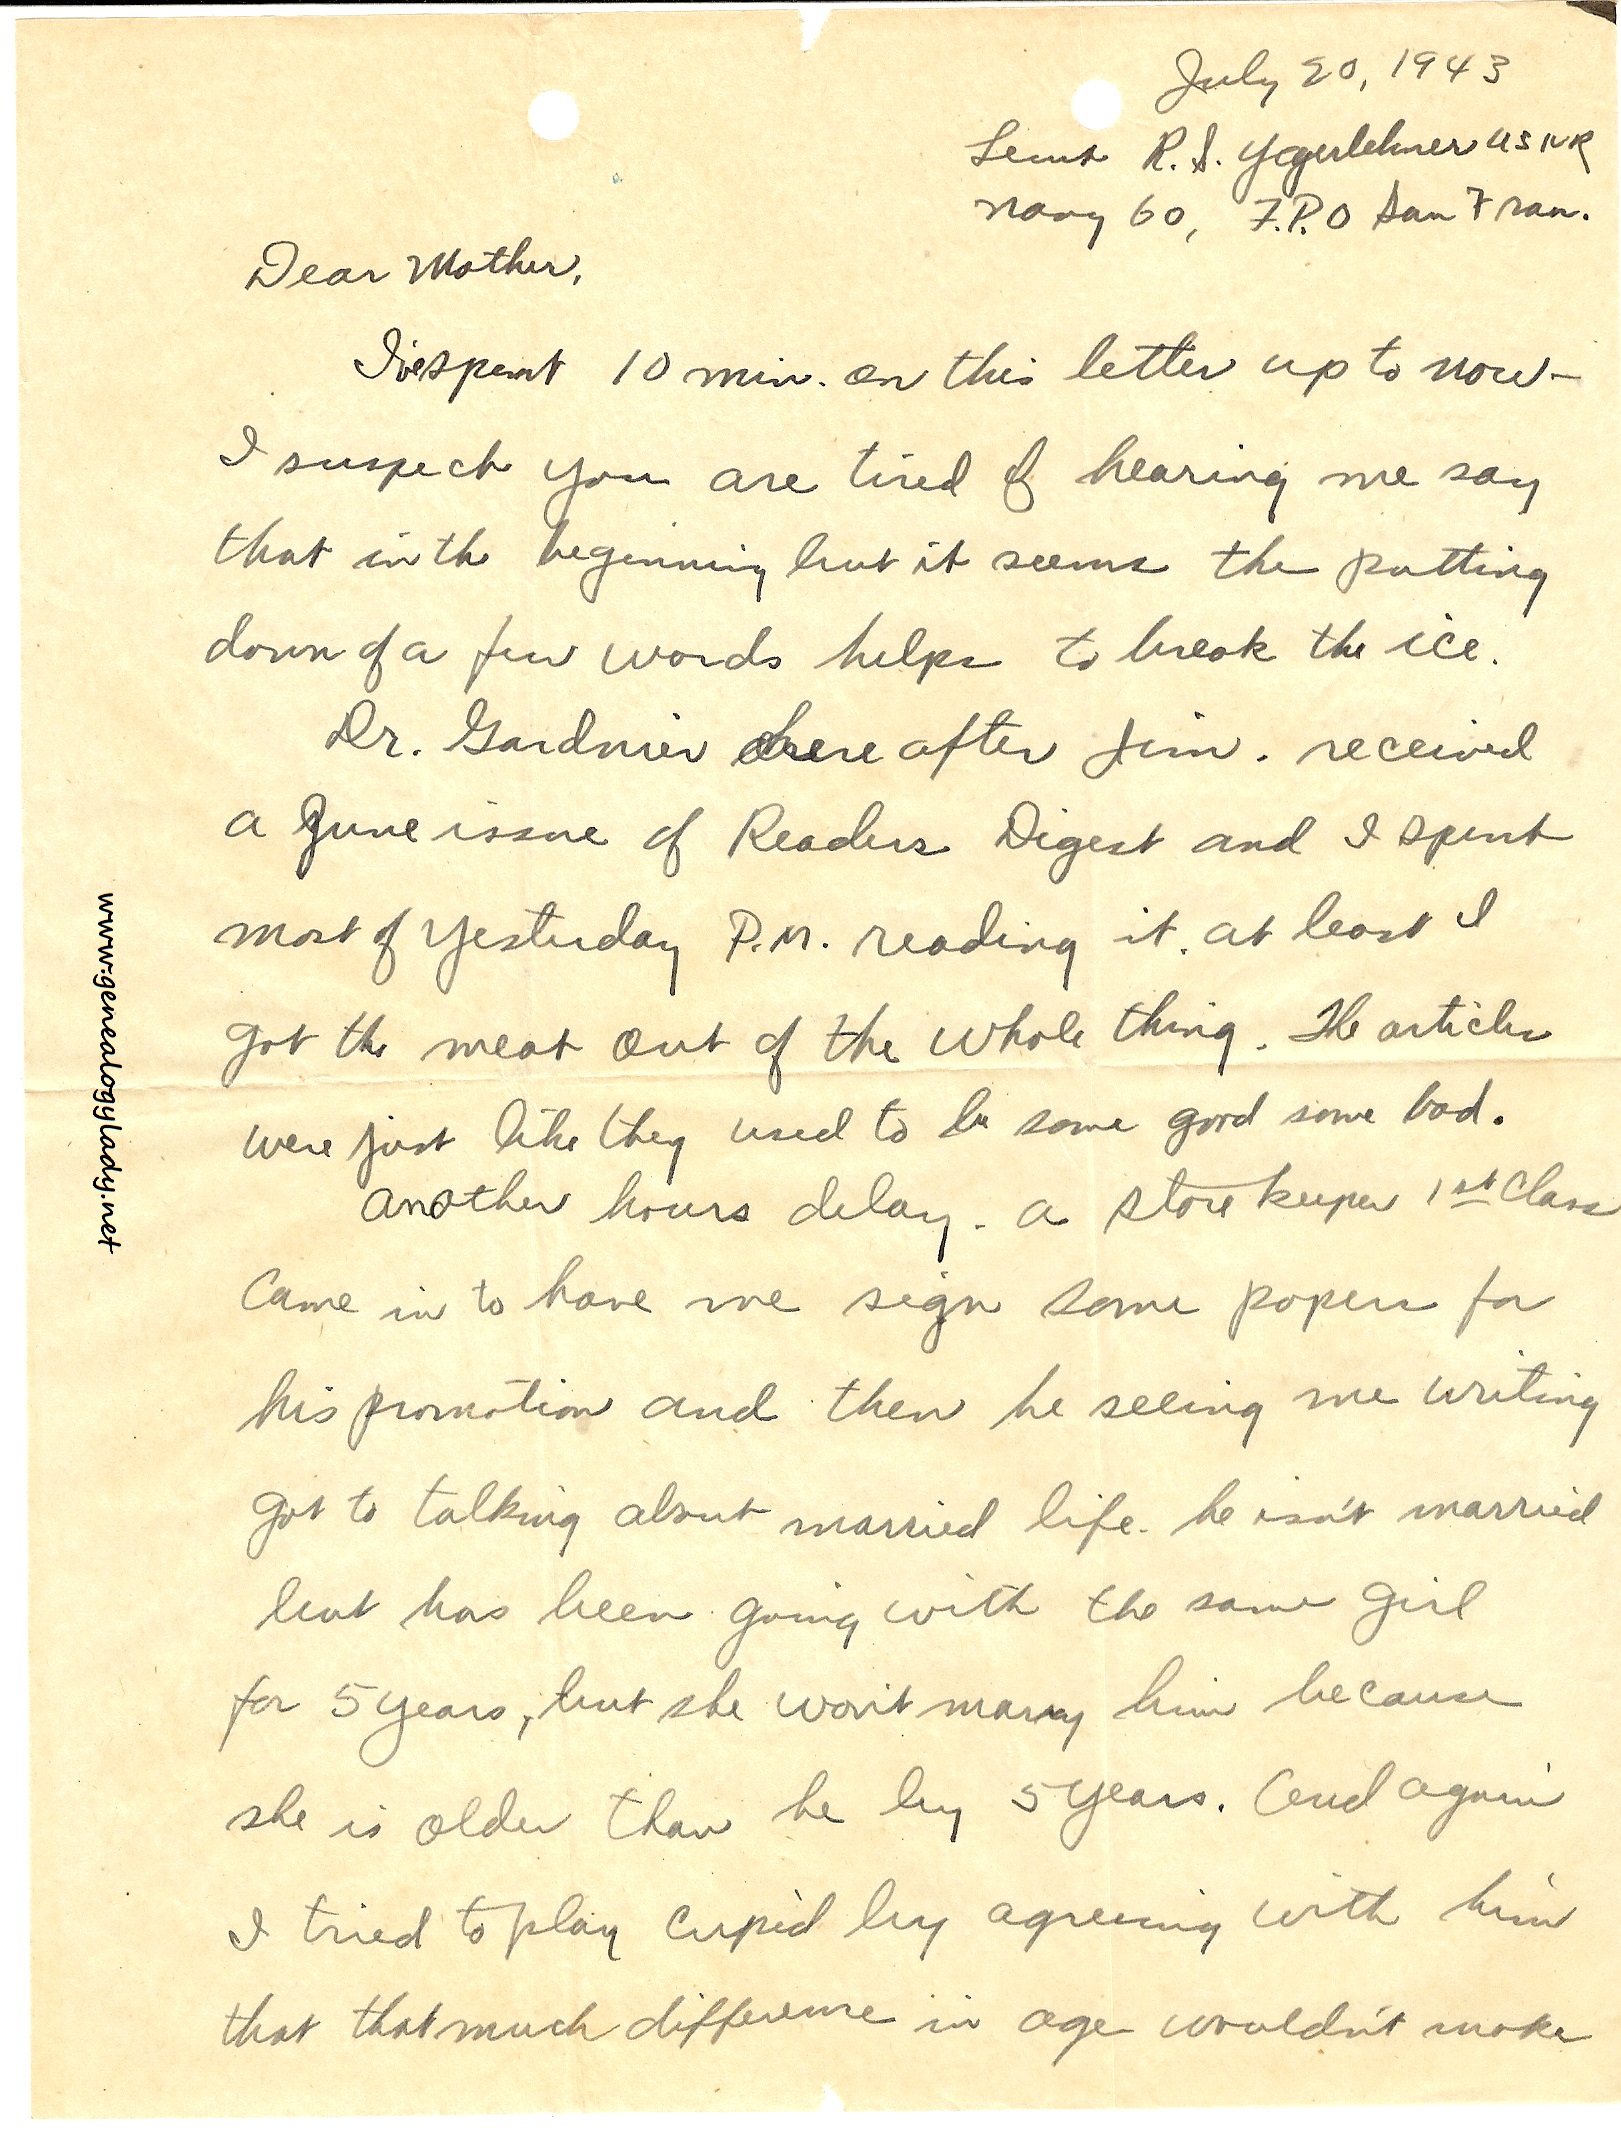 July 20, 1943
Leiut R. S. Yegerlehner USNR
Navy 60, F.P.O San Fran.
Dear Mother,
I've spent 10 min. on this letter up to now –
I suspect you are tired of hearing me say
that in the beginning but it seems the putting
down of a few words helps to break the ice.
Dr. Gardnier here after Jim. received
a June issue of Readers Digest and I spent
most of yesterday P.M. reading it. at least I
got the meat out of the whole thing. The articles
were just like they used to be some good some bad.
another hours delay. a store keeper 1st Class
Came in to have me sign some papers for
his promotion and then he seeing me writing
got to talking about married life. he isn't married
but has been going with the same girl
for 5 years, but she won't marry him because
she is older than he by 5 years. And again
I tried to play cupid by agreeing with him
that that much difference in age wouldn't make
www.genealogylady.net